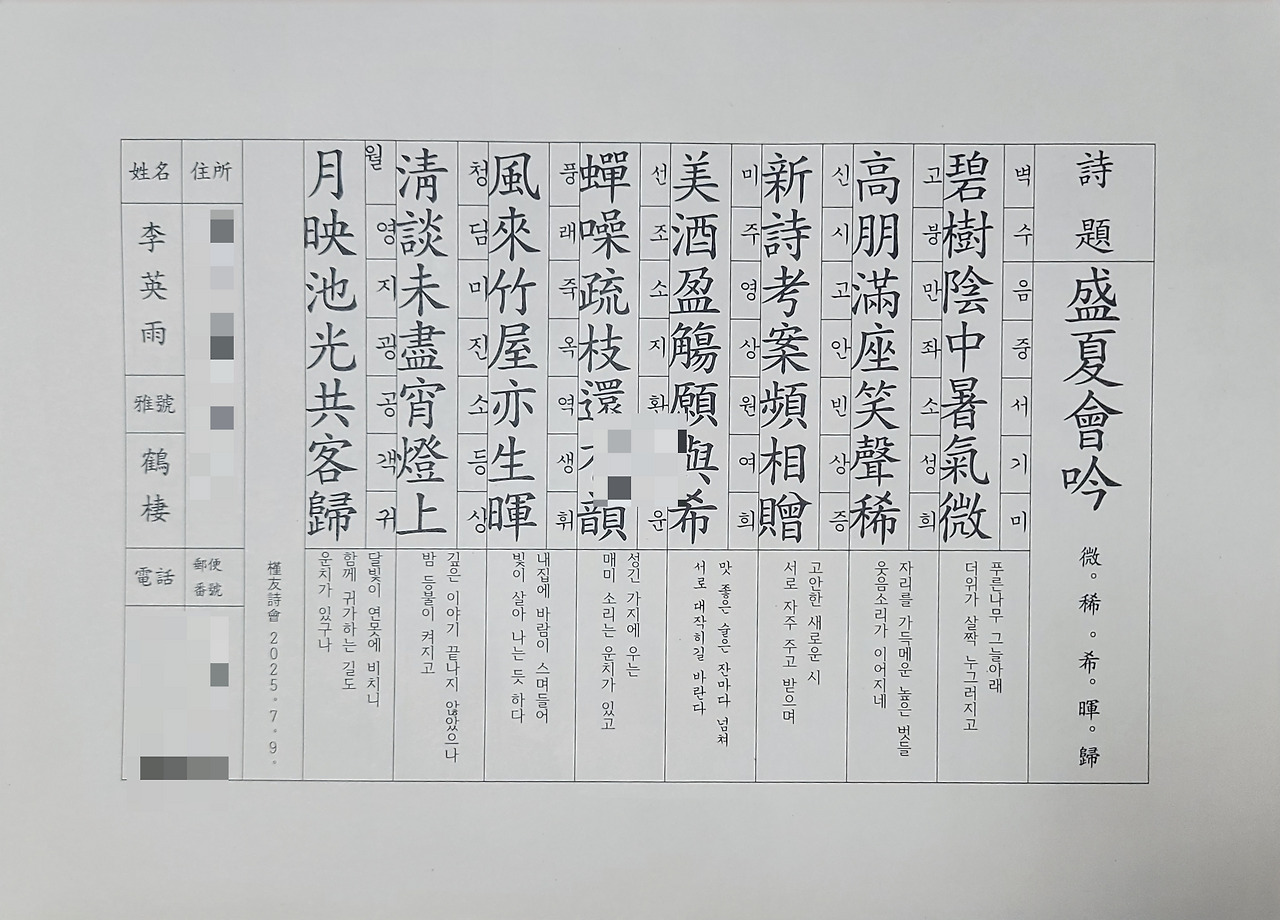 詩題
盛夏會吟
微。稀。希。暉。歸
벽수음중서기미
碧樹陰中暑氣微
푸른나무 그늘아래
더위가 살짝 누그러지고
고붕만좌소성희
高朋滿座笑聲稀
자리를 가득메운 높은 벗들
웃음소리가 이어지네
신시고안빈상증
新詩考案頻相贈
고안한 새로운 시
서로 자주 주고 받으며
미주영상원여희
美酒盈觴願與希
맛 좋은 술은 잔마다 넘쳐
서로 대작히길 바란다
선조소지환 운
蟬噪疏枝還 韻
성긴 가지에 우는
매미 소리는 운치가 있고
풍래죽옥역생휘
風來竹屋亦生暉
내집에 바람이 스며들어
빛이 살아 나는 듯 하다
청담미진소등상
淸談未盡宵燈上
깊은 이야기 끝나지 않았으나
밤 등불이 켜지고
월영지광공객귀
月映池光共客歸
달빛이 연못에 비치니
함께 귀가하는 길도
운치가 있구나
槿友詩會 2025.7.9.
住所
郵便
番號
姓名
李英雨
雅號
鶴棲
電話